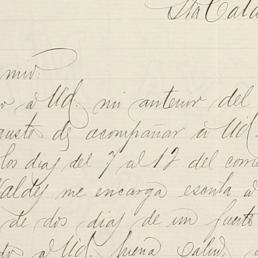 Sta Cata
mio:
a Ud. mi anterior del
gusto de acompañar á Ud.
los dias del 7 al 12 del corrie
Valdy me encarga escriba a
de dos dias de un fuerte
á Ud. buena salud,